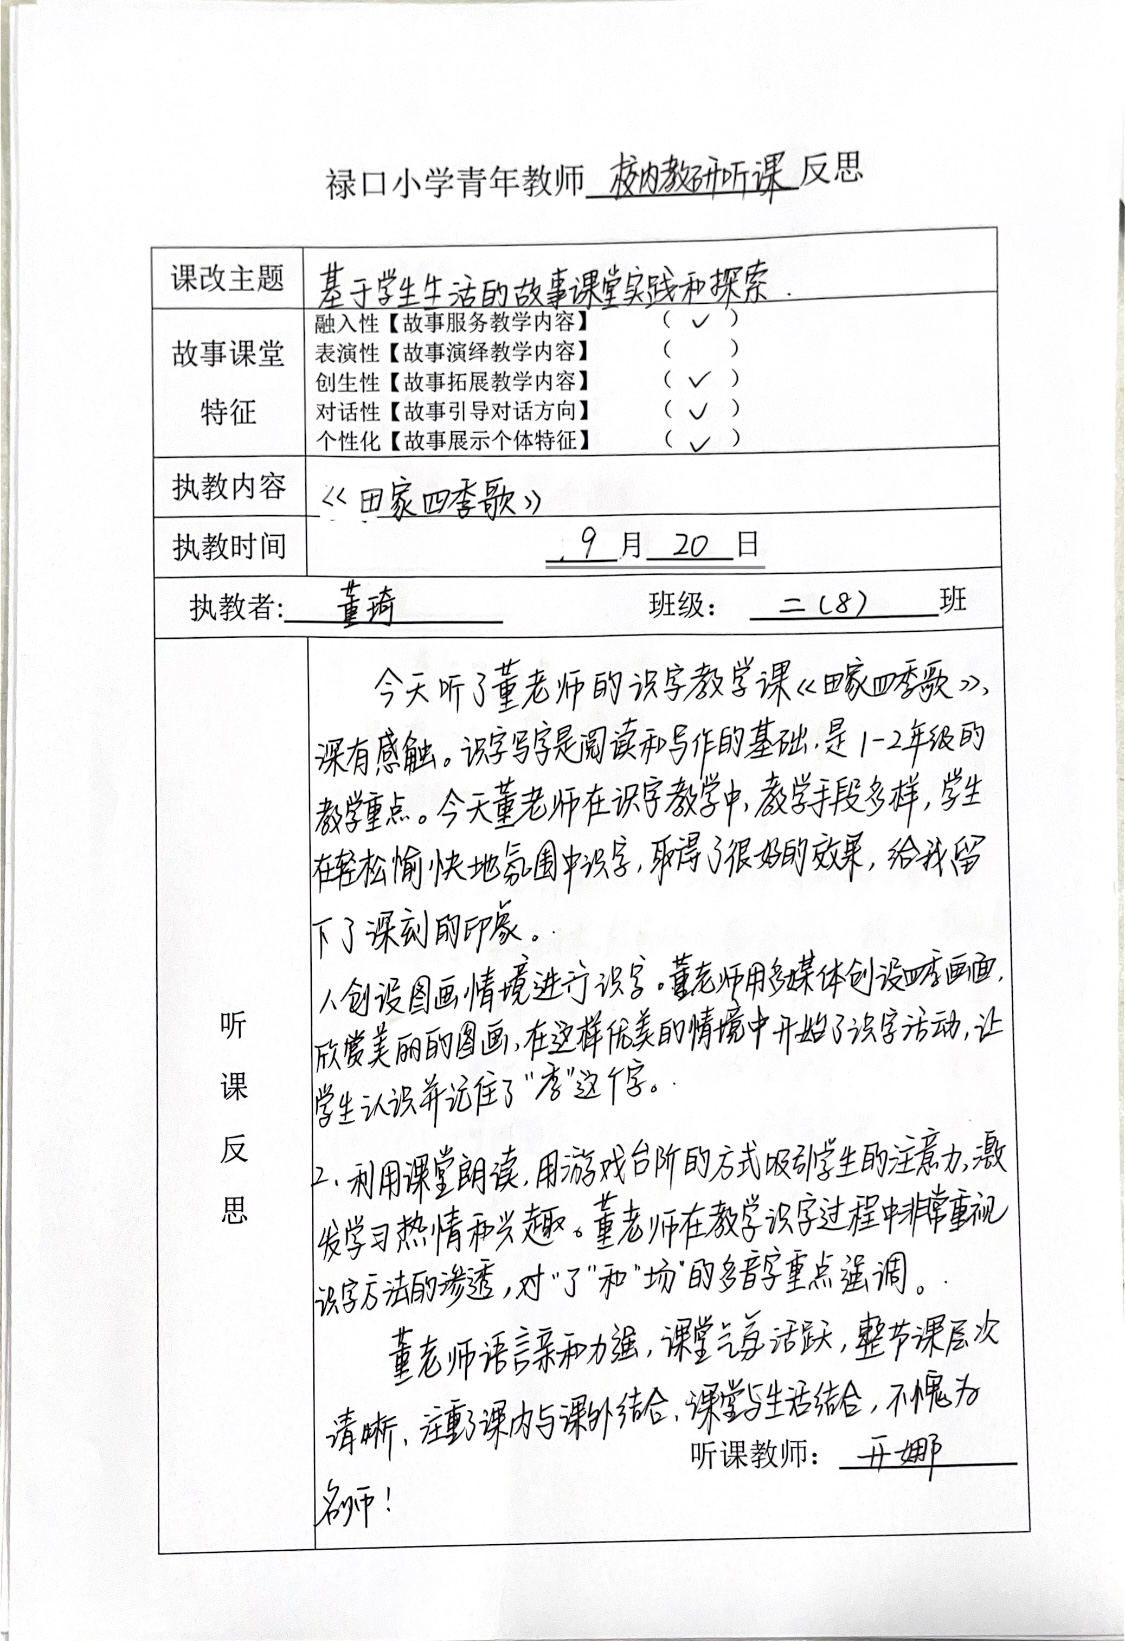 禄口小学青年教师 校内教研听课 反思
课改主题 基于学生生活的故事课堂实践和探索.
故事课堂
特征
融入性【故事服务教学内容】 （ ✓ ）
表演性【故事演绎教学内容】 （ ）
创生性【故事拓展教学内容】 （ ✓ ）
对话性【故事引导对话方向】 （ ✓ ）
个性化【故事展示个体特征】 （ ✓ ）
执教内容 《田家四季歌》
执教时间 9 月 20 日
执教者: 董琦 班级： 二（8） 班
听
课
反
思
今天听了董老师的识字教学课《田家四季歌》、
深有感触。识字写字是阅读和写作的基础，是1-2年级的
教学重点。今天董老师在识字教学中，教学手段多样，学生
在轻松愉快地氛围中识字，取得了很好的效果，给我留
下了深刻的印象。
1、创设图画情境进行识字。董老师用多媒体创设四季画面，
欣赏美丽的图画，在这样优美的情境中开始了识字活动，让
学生认识并记住了“季”这个字。
2、利用课堂朗读，用游戏台阶的方式吸引学生的注意力，激
发学习热情和兴趣。董老师在教学识字过程中非常重视
识字方法的渗透，对“了”和“场”的多音字重点强调。
董老师语言亲和力强，课堂气氛活跃，整节课层次
清晰、注重了课内与课外结合、课堂与生活结合，不愧为
名师！
听课教师：  娜